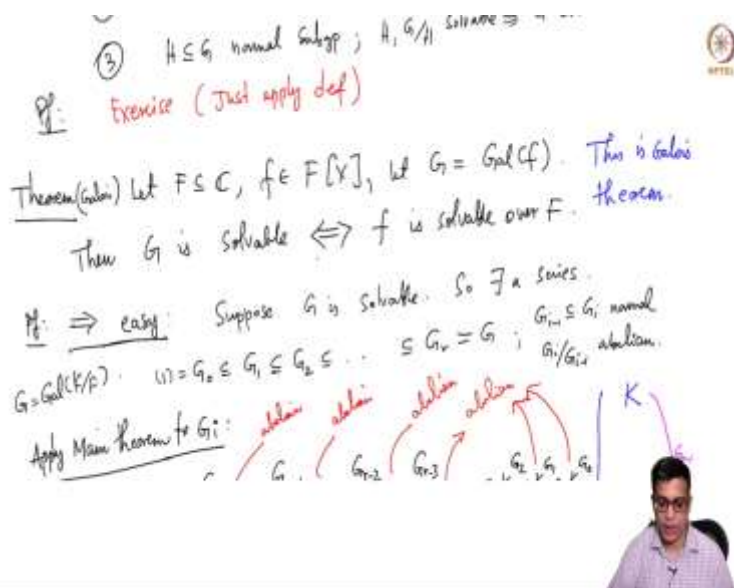 ③ H ⊆ G normal subgp ; H, G/H solvable ⇒ G
Pf: Exercise (Just apply def)
Theorem (Galois) Let F ⊆ C, f ∈ F[X], let G = Gal(f). This is Galois
theorem.
Then G is solvable ⟺ f is solvable over F.
Pf: ⇒ easy: Suppose G is solvable. So ∃ a series
G = Gal(K/F). (1) = G₀ ⊆ G₁ ⊆ G₂ ⊆ .. ⊆ Gᵣ = G ; Gᵢ₋₁ ⊆ Gᵢ normal
Gᵢ/Gᵢ₋₁ abelian.
Apply Main theorem to Gᵢ: abelian abelian abelian abelian K
Gᵣ₋₂ Gᵣ₋₃ G₂ G₁ G₀
NPTEL